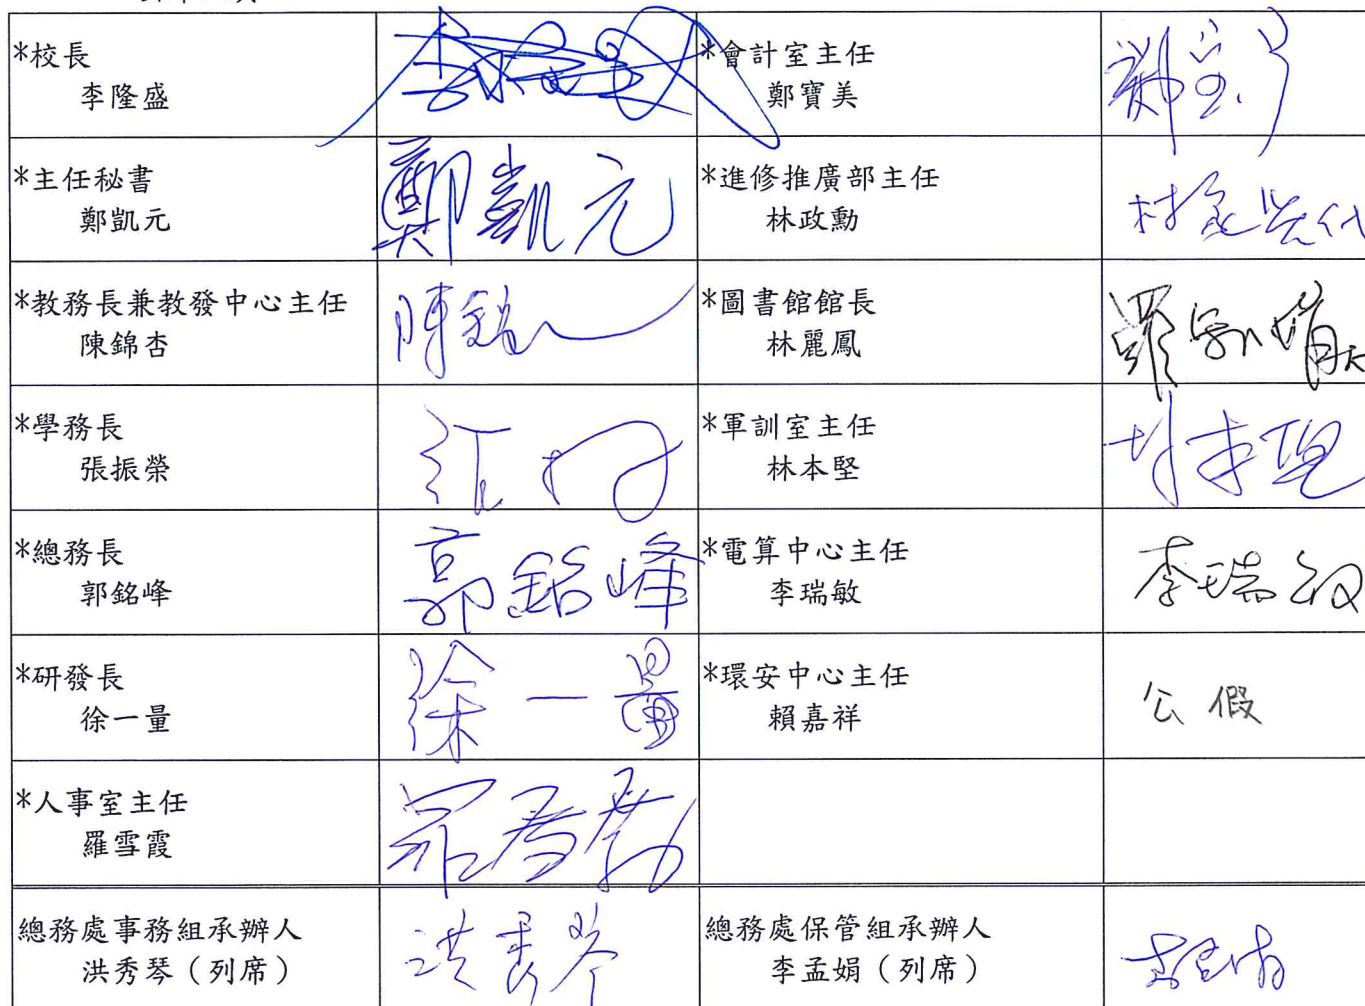 *校長
李隆盛
*會計室主任
鄭寶美
*主任秘書
鄭凱元
鄭凱元
*進修推廣部主任
林政勳
*教務長兼教發中心主任
陳錦杏
*圖書館館長
林麗鳳
*學務長
張振榮
*軍訓室主任
林本堅
林本堅
*總務長
郭銘峰
郭銘峰
*電算中心主任
李瑞敏
李瑞敏
*研發長
徐一量
徐一量
*環安中心主任
賴嘉祥
公假
*人事室主任
羅雪霞
總務處事務組承辦人
洪秀琴（列席）
洪秀琴
總務處保管組承辦人
李孟娟（列席）